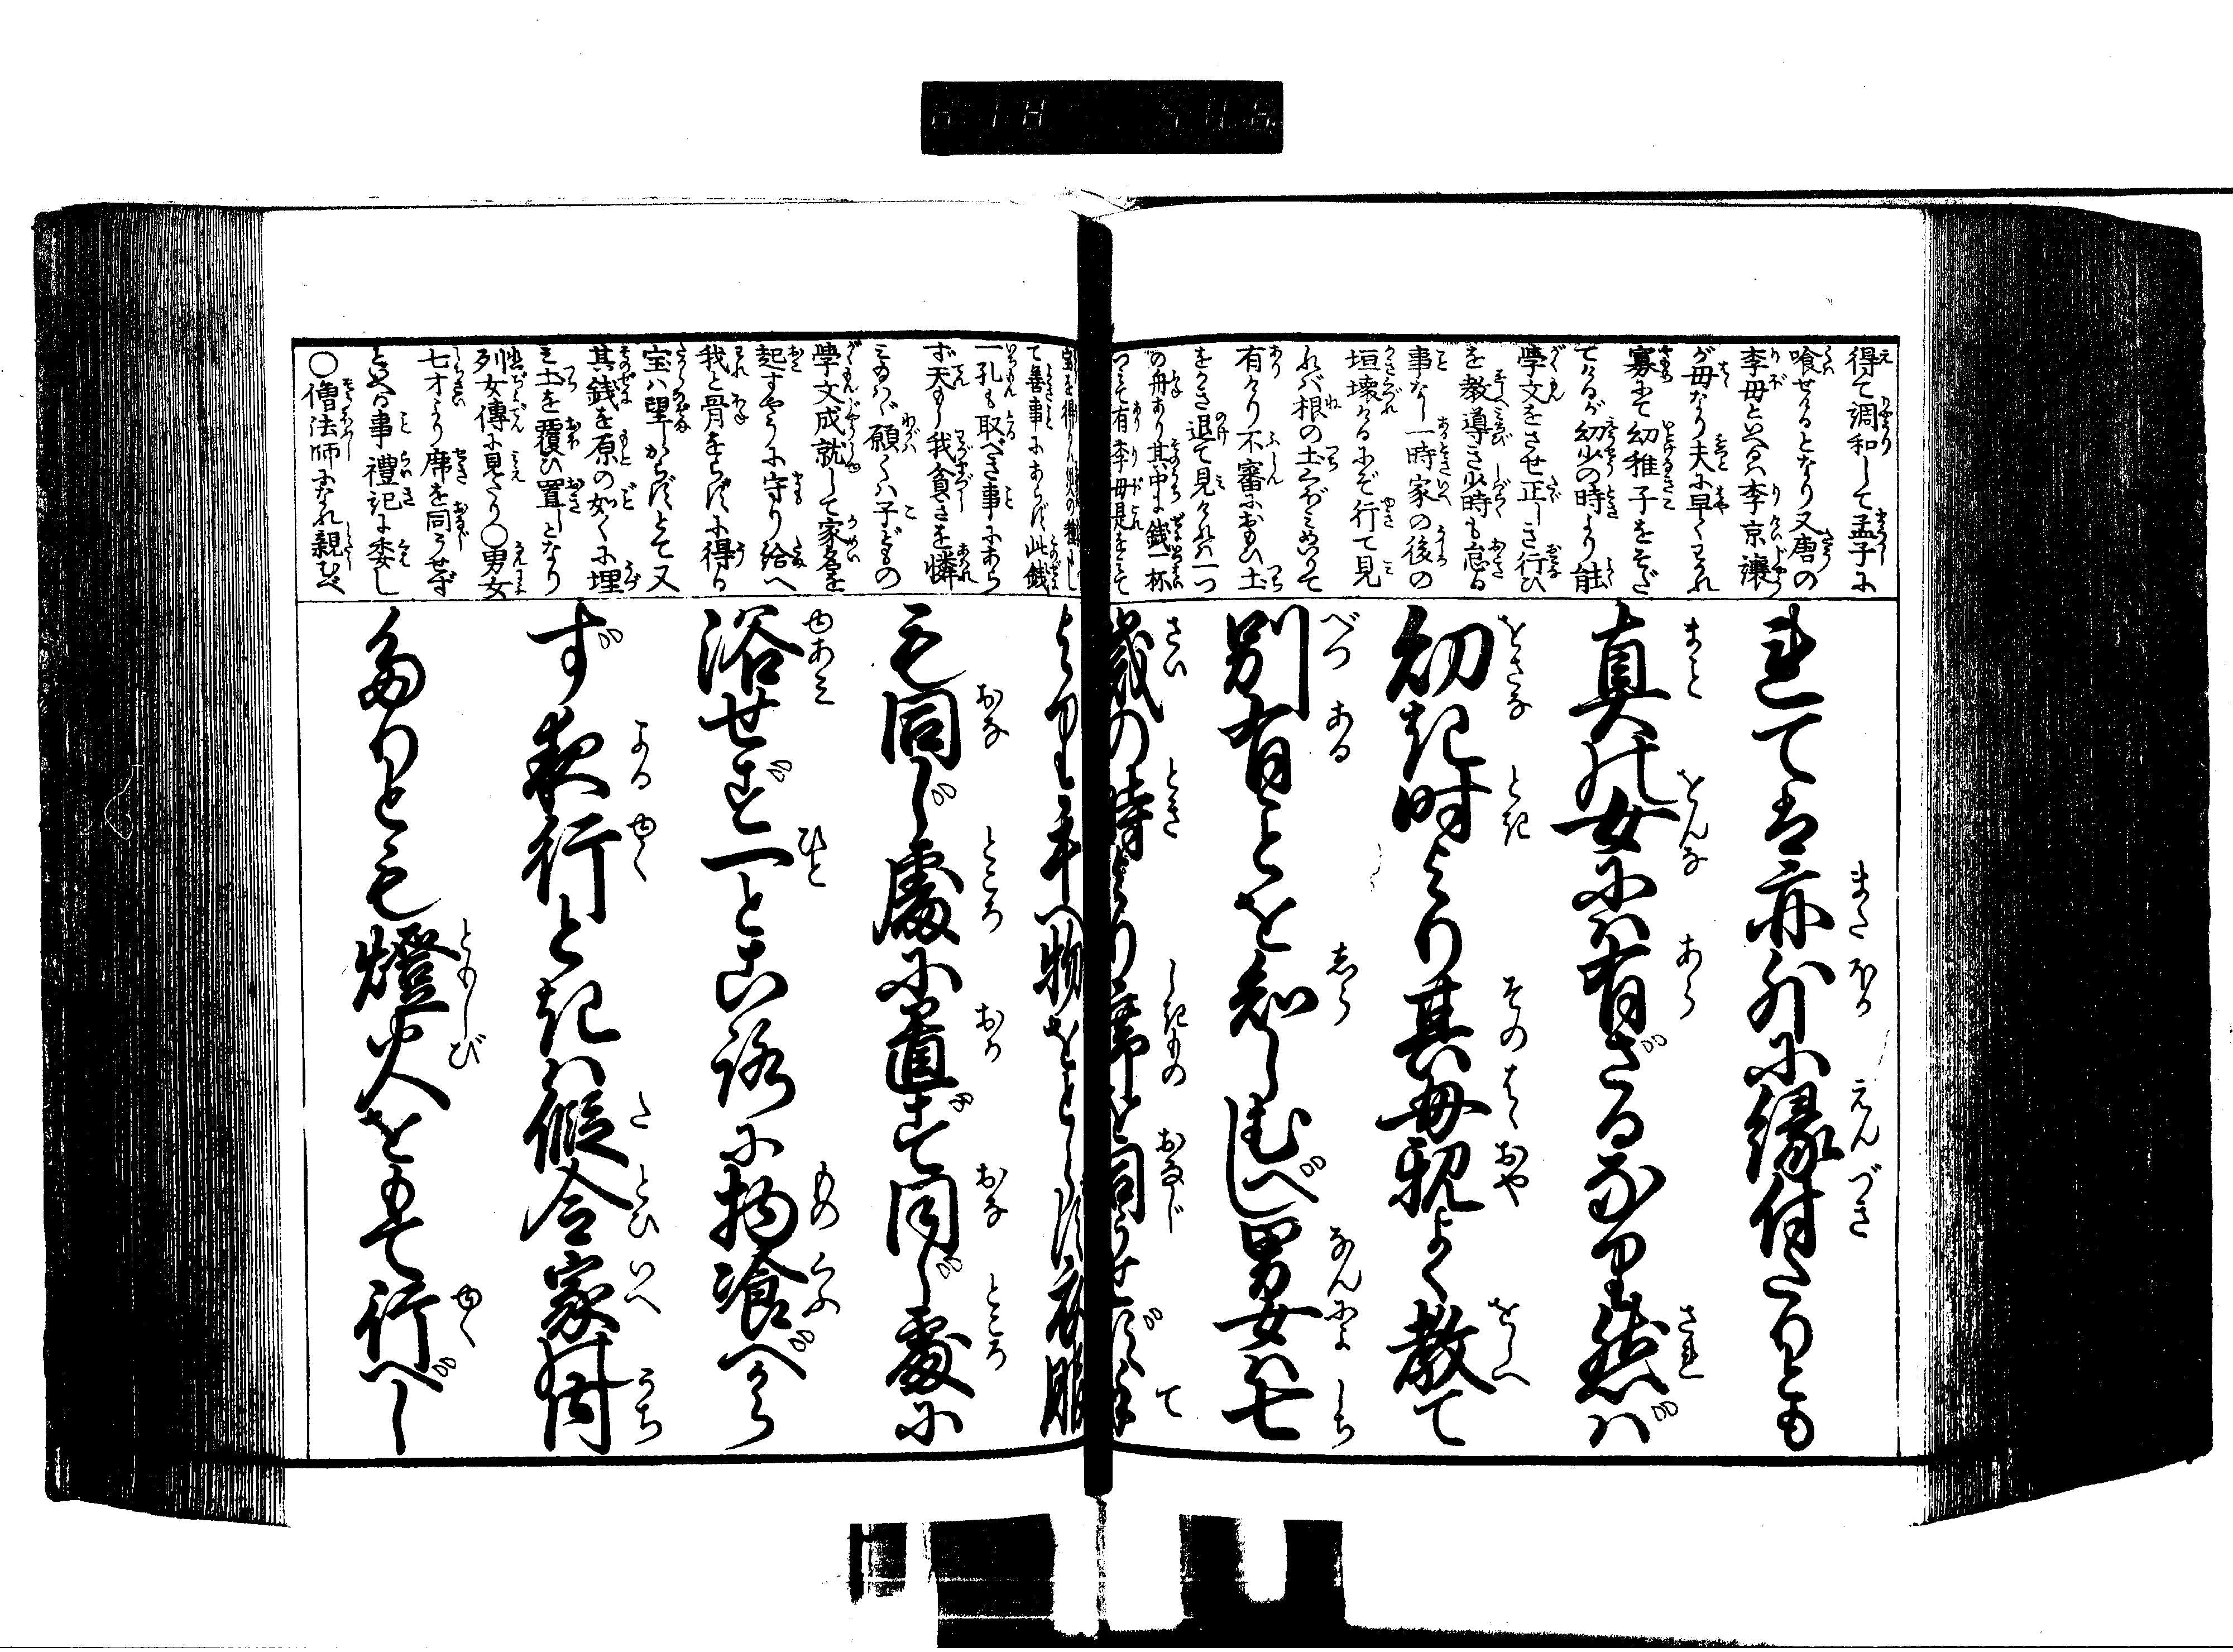 得て調和して孟子に
喰せるとなり又唐の
李母といへるハ李京讓
が母なり夫に早くわかれ
寡にて幼稚子をそだ
てけるが幼少の時より能
學文をさせ正しき行ひ
を教導き少時も怠る
事なし一時家の後の
垣壊けるにぞ行て見
れバ根の土くぼミめいりて
有けり不審におもひ土
をかき退て見けれハ一つ
の舟あり其中に銭一杯
つミて有李母是をミて
て善事にあらず此銭
一孔も取べき事にあら
ず天もし我貧きを憐
ミ給ハゞ願くハ子どもの
學文成就して家名を
起すやうに守り給へ
我と骨をらずに得る
宝ハ望しからずとて又
其銭を原の如くに埋
ミ土を覆ひ置しとなり
列女傳に見えたり〇男女
七才より席を同うせず
といへる事禮記に委し
〇僧法師になれ親むべ
れては亦外に縁付たりとも
真の女にハ有ざるなり然バ
幼き時より其母親よく教て
別有ことを知しむべし男女ハ七
歳の時より席を同うせず餘
より手へ物をとらず衣服
も同じ處に置ず同じ處に
浴せず一ところに物喰べから
ず夜行ときハ假令家内
たりとも燈火をもて行べし